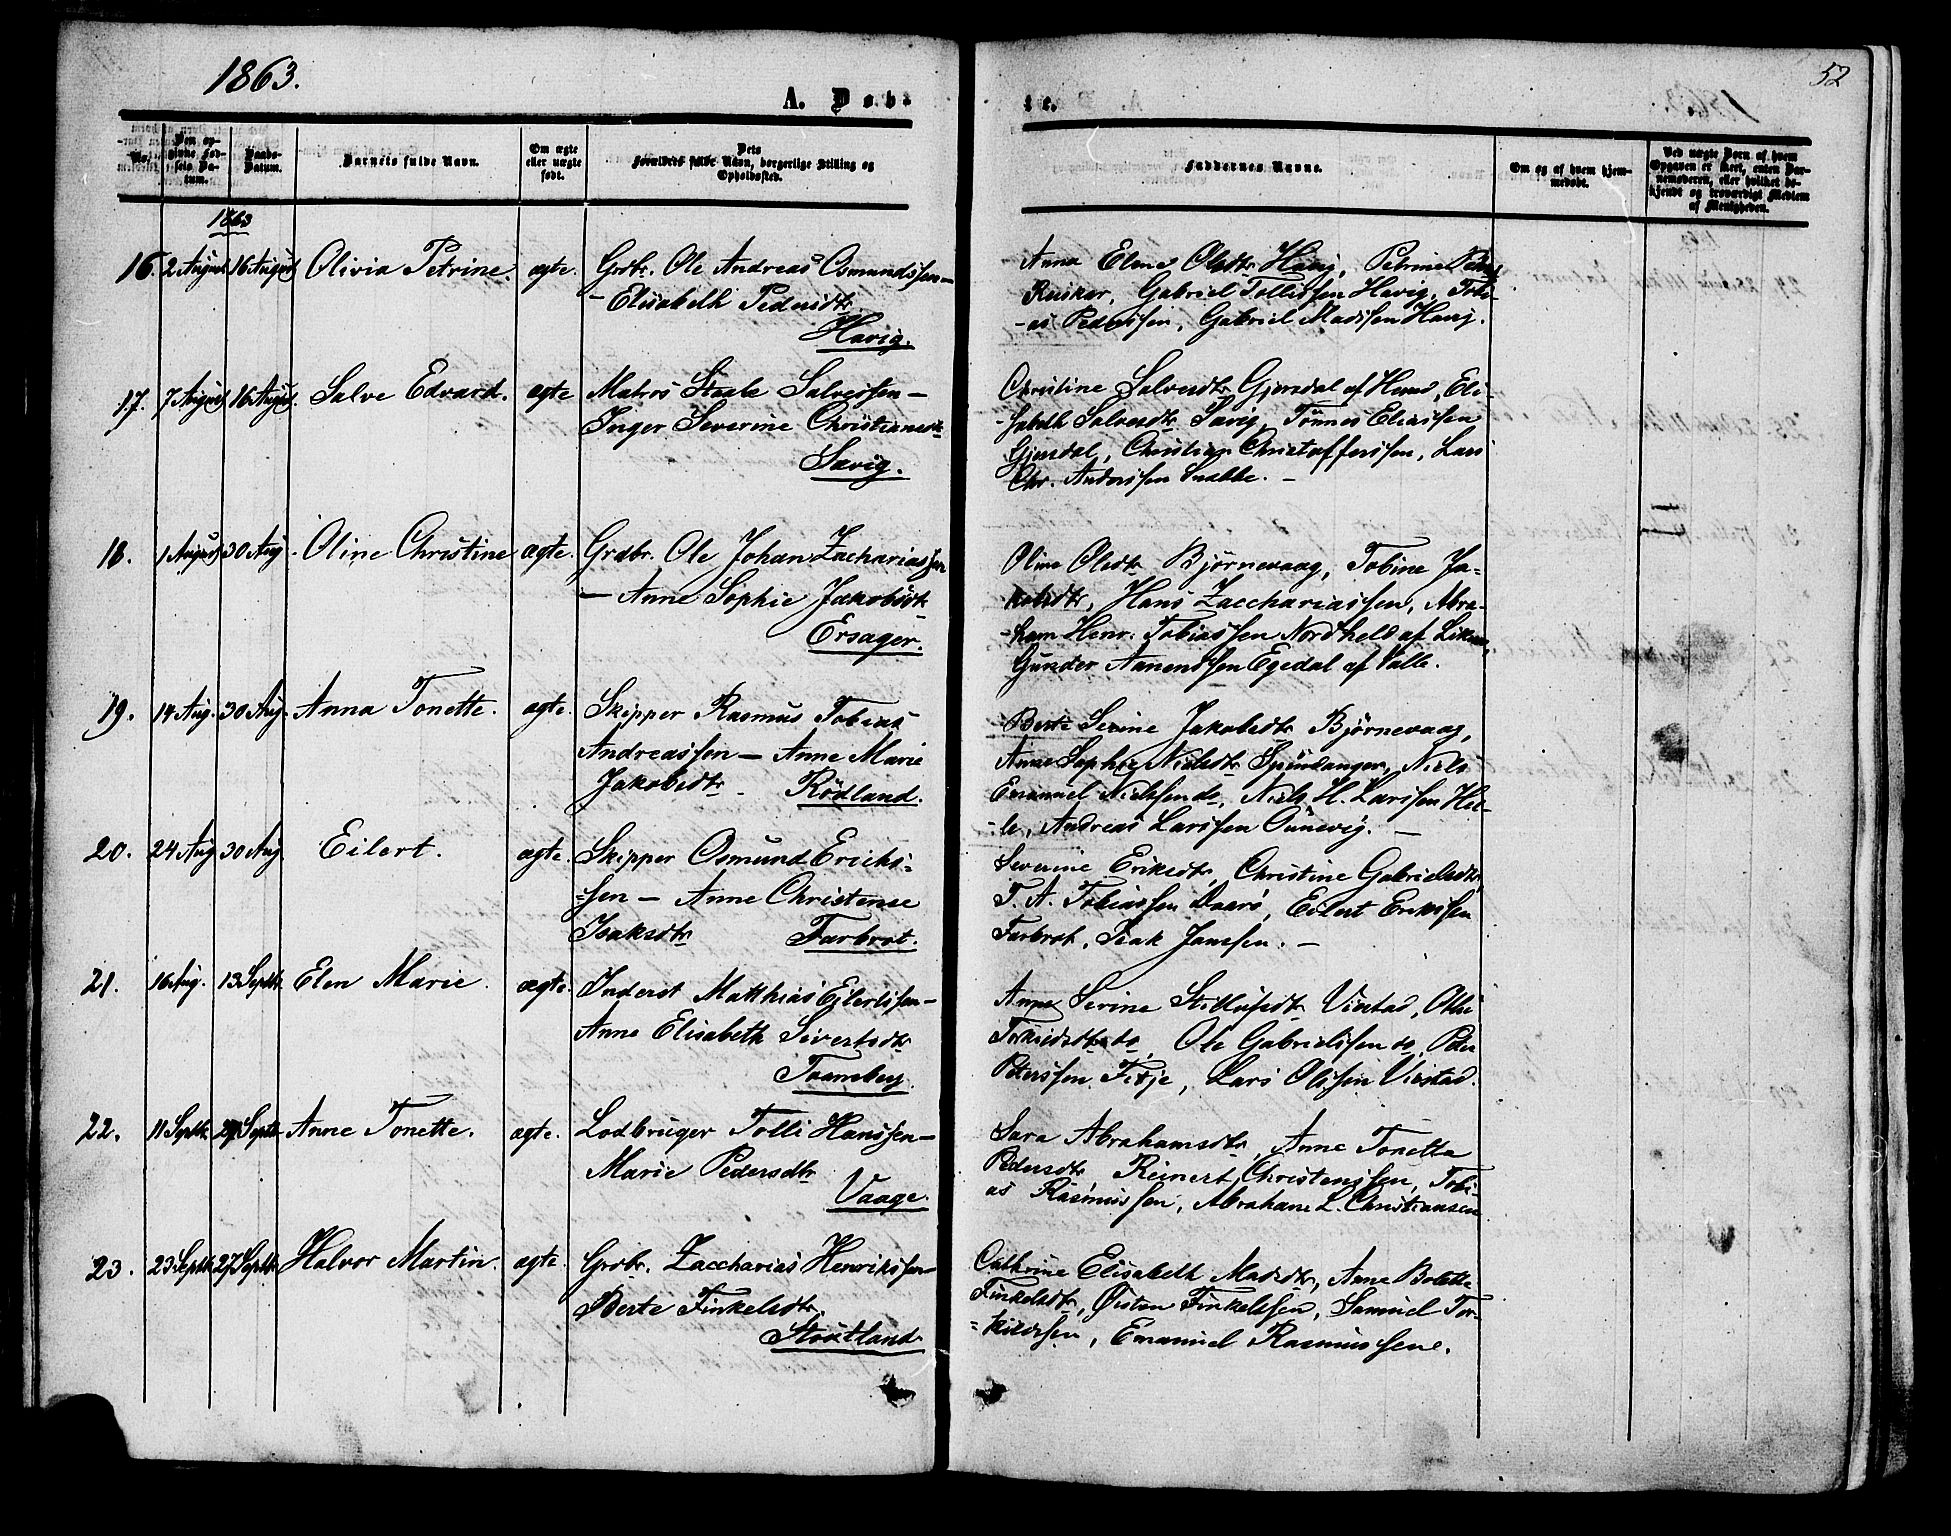 1863.
A. Døb-
te.
52
No.
Den opgivne Fødsels Datum.
Daabs-Datum.
Barnets fulde Navn.
Om ægte eller uægte født.
Dets Forældres fulde Navn, borgerlige Stilling og Opholdssted.
Faddernes Navne.
Om og af hvem hjemmedøbt.
Ved uægte Børn af hvem Opgaven er skeet, enten Barnemoderen, eller hvilket bekjendt og troværdigt Medlem af Menigheden.
1863
16. 2 August 16 August Olivia Petrine. ægte. Grdbr. Ole Andreas Osmundssen —
— Elisabeth Pedersdtr
Havig.
Anna Elene Olsdtr Havig, Petrine
Gabriel Tollissen Havig, Tobi-
-as Pederssen, Gabriel Madssen Havig.
17. 7 August 16 August. Salve Edvard. ægte Matros Salvessen —
Inger Severine Christiansdtr
Sævig.
Christine Salvesdtr Gjersdal af Herred, Eli-
-sabeth Salvesdtr Sævig, Tønnes Eliassen
Gjersdal, Christian Christofferssen, Lars
Chr. Anderssen Snække. —
18. 1 August 30 Aug. Oline Christine ægte. Grdbr. Ole Johan Zachariassen
— Anne Sophie Jakobsdtr
Ersager.
Oline Olsdtr Bjørnevaag, Tobine Ja-
kobsdtr, Hans Zacchariassen, Abra-
-ham Henr. Tobiassen Nordheld af
Gunder Aanendsen Egedal af Valle.
19. 14 Aug. 30 Aug. Anna Tonette. ægte. Skipper Rasmus Tobias
Andreassen — Anne Marie
Jakobsdtr - Rödland.
Berte Serine Jakobsdtr Bjørnevaag,
Anne Sophie Nielsdtr Spindanger, Niels
Emanuel Nielssen do, Niels H. Larssen Hel-
-le, Andreas Larssen —
20. 24 Aug. 30 Aug. Eilert. ægte. Skipper Osmund Erichs-
=sen — Anne Christense
Isaksdtr Farbrot.
Severine Eriksdtr, Christine Gabrielsdtr,
T. A. Tobiassen Eilert Erikssen
Farbrot, Isak Janssen. —
21. 16 Aug. 13 Septbr. Elen Marie. ægte. Inderst Matthias Eilertssen —
Anne Elisabeth Sivertsdtr
Anne Serine Virstad,
do, Ole Gabrielssen do, Peder
Pederssen Lars Olssen Virstad.
22. 11 Septbr. 27 Septbr. Anne Tonette. ægte. Lodbruger Tolli Hanssen —
Marie Pedersdtr
Vaage.
Sara Abrahamsdtr, Anne Tonette
Pedersdtr Reinert Christenssen, Tobi-
as Rasmussen, Abraham L. Christiansen
23. 23 Septbr. 27 Septbr. Halvor Martin. ægte. Grdbr. Zaccharias Henrikssen
Berte Tinkelsdtr.
Støutland
Cathrine Elisabeth Madsdtr, Anne Bolette
Tinkelsdtr, Øisten Tinkelssen, Samuel Tor-
=kildssen, Emanuel Rasmussen.